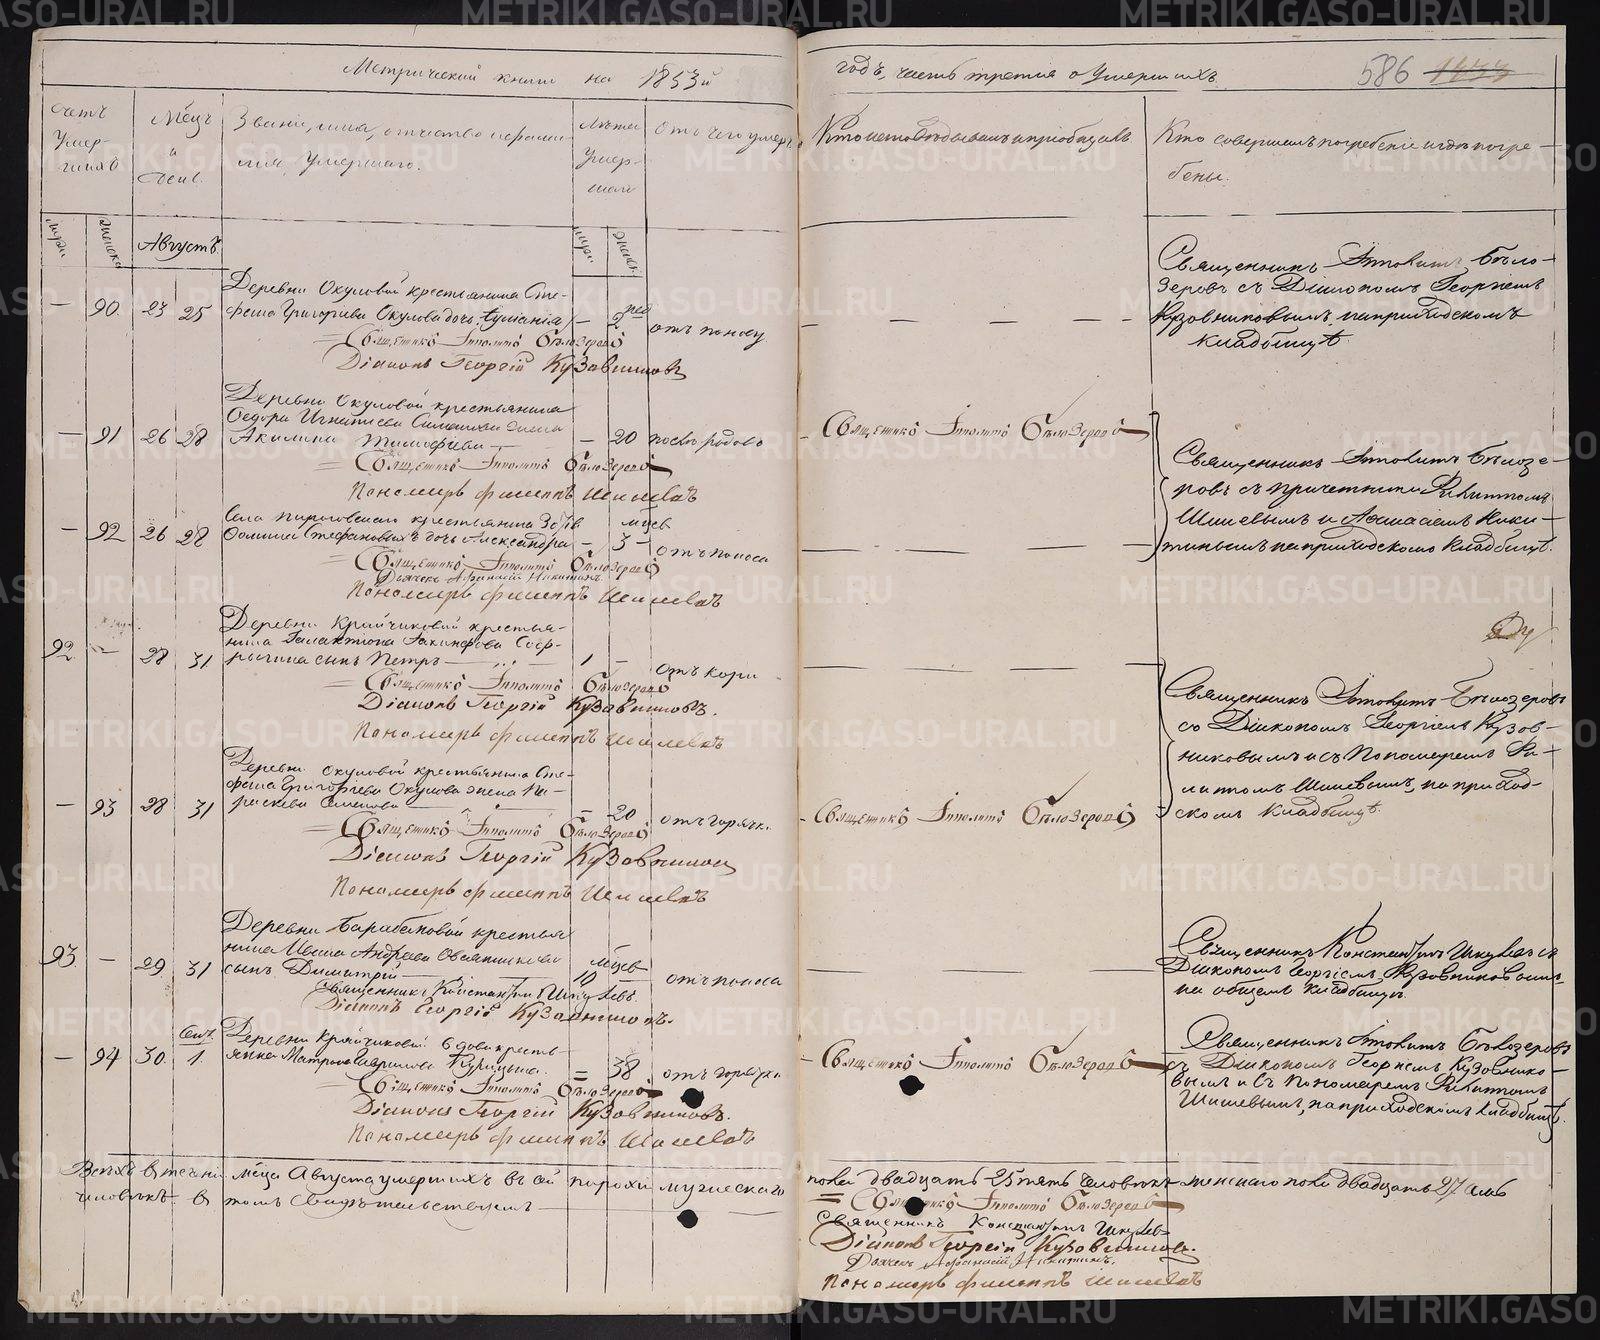 Метрической книги на 1853й
годъ, часть третія о Умершихъ.
586
Счетъ Умер-шихъ
Мѣцъ и День.
Званіе, имя, отчество и фами-
лія, умершаго.
Лѣта Умер-шаго
Отъ чего умеръ
Кто исповѣдывалъ и пріобщалъ
Кто совершалъ погребеніе и гдѣ погре-
бены.
муж. женска
Августъ
муж. женск.
Деревни Окуловой крестьянина Сте-
— 90 23 25 фана Григорьева Окулова дочь — 2 нед отъ поносу
= Священникъ Ипполитъ Бѣлозеровъ
Діаконъ Георгій Кузовниковъ
Священникъ Ипполитъ Бѣло-
зеровъ съ Діакономъ Георгіемъ
Кузовниковымъ, на приходскомъ
кладбищѣ
Деревни Окуловой крестьянина
Федора Игнатьева жена
— 91 26 28 Акилина Тимофѣева — — 20
= Священникъ Ипполитъ Бѣлозеровъ
Пономарь Филиппъ Шишевъ
Священникъ Ипполитъ Бѣлозеровъ
Священникъ Ипполитъ Бѣлозе-
ровъ съ причетники Филиппомъ
Шишевымъ и Афанасіемъ Ники-
тинымъ на приходскомъ кладбищѣ.
Села крестьянина
— 92 26 28 Фомина Стефановыхъ дочь Александра — мцев 3 — отъ поноса
= Священникъ Ипполитъ Бѣлозеровъ
Дьячекъ Афанасій Никитинъ
Пономарь Филиппъ Шишевъ
Деревни Крайчиковой крестья-
нина Галактіона
92 — 28 31 сынъ Петръ — 1 — отъ кори
= Священникъ Ипполитъ Бѣлозеровъ
Діаконъ Георгій Кузовниковъ.
Пономарь Филиппъ Шишевъ
Священникъ Ипполитъ Бѣлозеровъ
со Діакономъ Георгіемъ Кузов-
никовымъ и съ Пономаремъ Фи-
липпомъ Шишевымъ, на приход-
скомъ кладбищѣ.
Деревни Окуловой крестьянина Сте-
фана Григорьева Окулова жена Па-
— 93 28 31 раскева Семенова — = 20 отъ горячк.
= Священникъ Ипполитъ Бѣлозеровъ
Діаконъ Георгій Кузовников
Пономарь Филиппъ Шишевъ
Священникъ Ипполитъ Бѣлозеровъ
Деревни Барабановой крестья
нина Ивана Андреева Овсянникова
93 — 29 31 сынъ Димитрій — мцев 10 отъ поноса
Священникъ Константинъ Шкулевъ.
Діаконъ Георгій Кузовниковъ.
Священникъ Константинъ Шкулевъ съ
Діакономъ Георгіемъ Кузовниковымъ
на общемъ кладбищѣ.
Сент. Деревни Крайчиковой вдова кресть-
— 94 30 1. янка Матрона Гаврилова = 38 отъ горячки
= Священникъ Ипполитъ Бѣлозеровъ
Діаконъ Георгій Кузовниковъ.
Пономарь Филиппъ Шишевъ
Священникъ Ипполитъ Бѣлозеровъ
Священникъ Ипполитъ Бѣлозеровъ
съ Діакономъ Георгіемъ Кузовнико-
вымъ и съ Пономаремъ Филиппомъ
Шишевымъ, на приходскомъ кладбищѣ.
Всѣхъ въ теченіи мѣца Августа умершихъ въ сей мужескаго пола двадцать 25 пять человѣкъ женскаго пола двадцать 27 семь
человѣкъ. въ томъ свидѣтельствуемъ —
= Священникъ Ипполитъ Бѣлозеровъ
Священникъ Константинъ Шкулевъ
Діаконъ Георгій Кузовниковъ.
Дьячекъ Афанасій Никитинъ.
Пономарь Филиппъ Шишевъ
METRIKI.GASO-URAL.RU